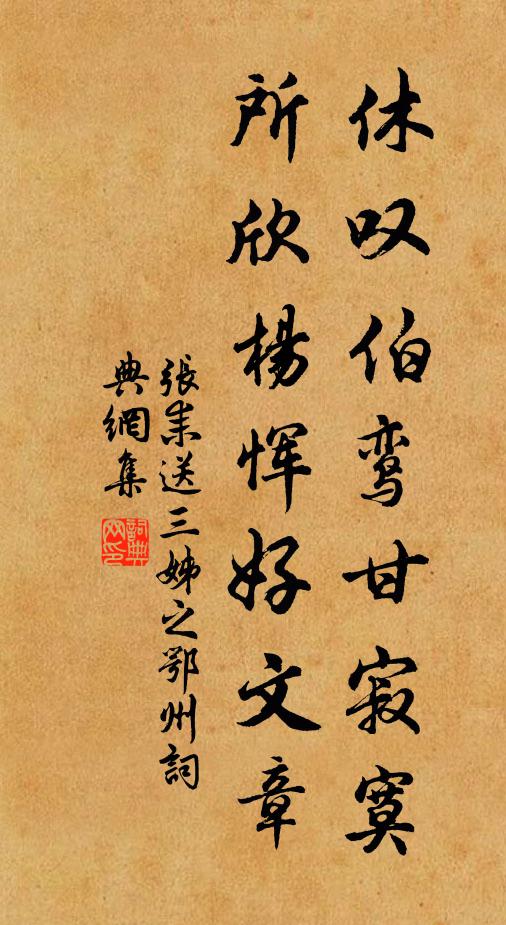 休叹伯鸾甘寂寞
所欣楊恽好文章
張耒送三姊之鄂州詞
典網集
詞典网印